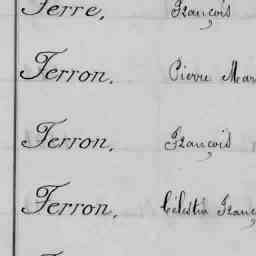 Ferre, François
Ferron. Pierre Mar
Ferron, François
Ferron, Célestin Franç